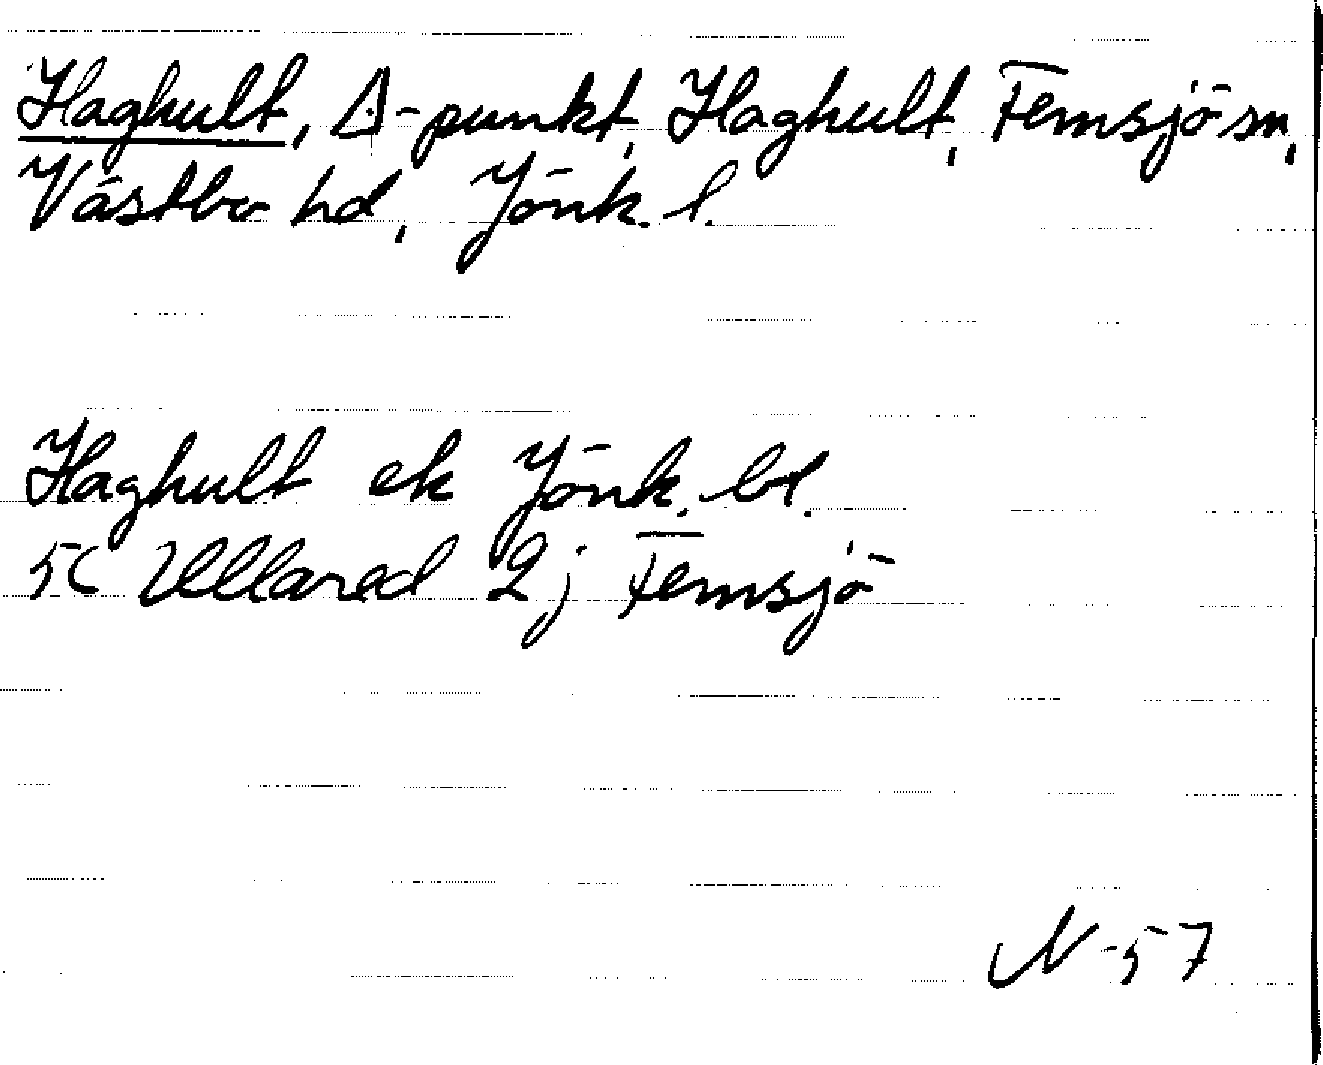 Haghult, Δ-punkt, Haghult, Femsjö sn,
Västbo hd, Jönk. l.
Haghult ek Jönk. bl.
5C Ullared 2j Femsjö
N-57